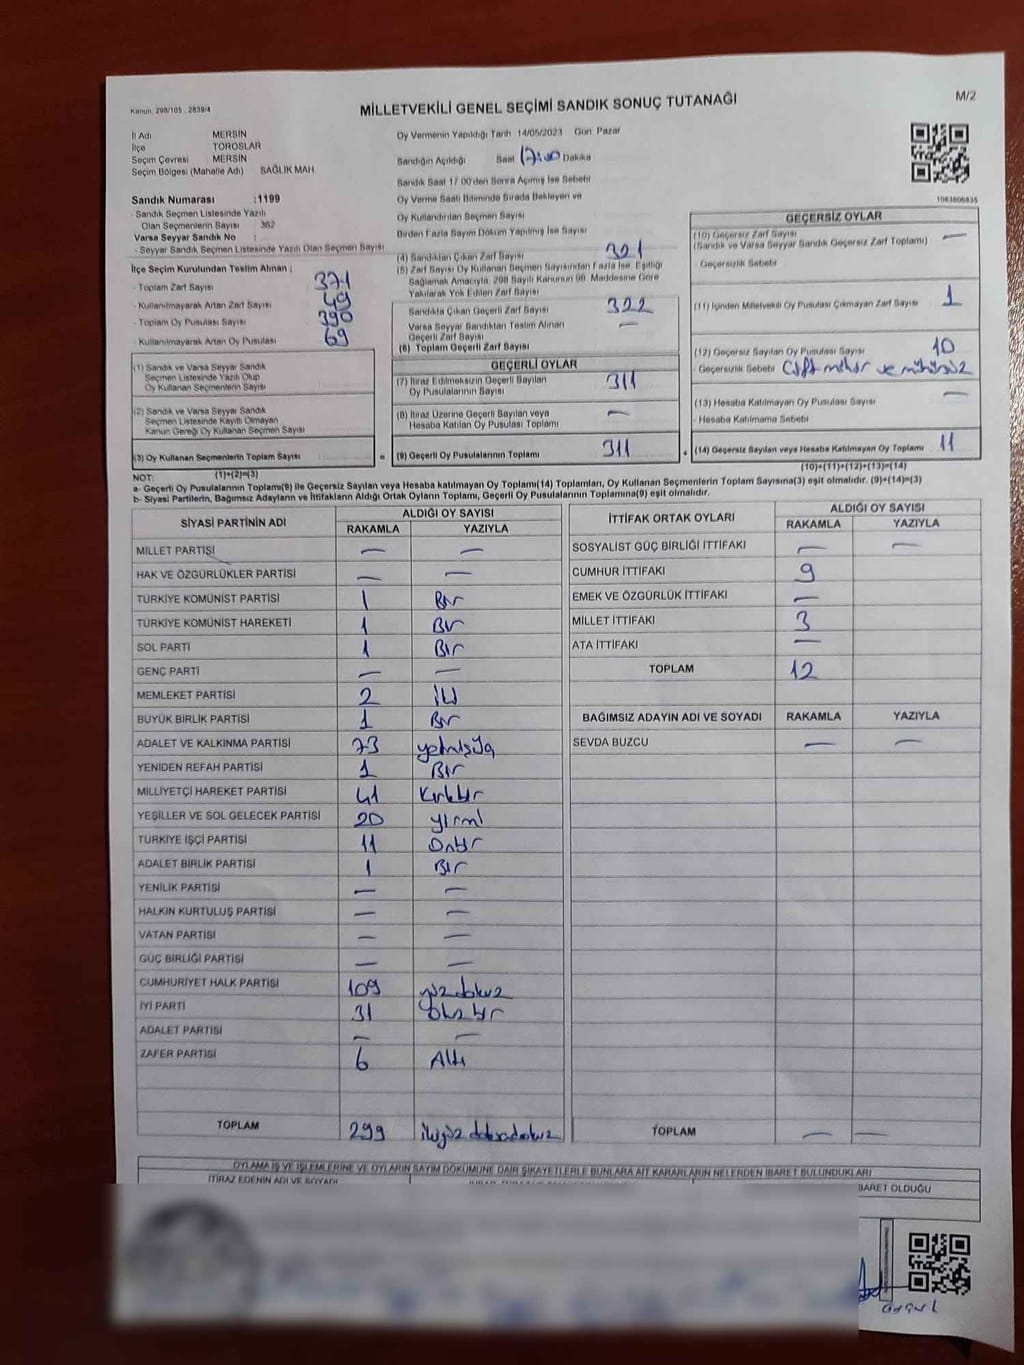 Kanun, 298/105 , 2839/4
MİLLETVEKİLİ GENEL SEÇİMİ SANDIK SONUÇ TUTANAĞI
M/2
İl Adı MERSİN
İlçe TOROSLAR
Seçim Çevresi MERSİN
Seçim Bölgesi (Mahalle Adı) SAĞLIK MAH
Sandık Numarası :1199
- Sandık Seçmen Listesinde Yazılı
Olan Seçmenlerin Sayısı : 362
Varsa Seyyar Sandık No :
- Seyyar Seçmen Listesinde Yazılı Olan Seçmen Sayısı
İlçe Seçim Kurulundan Teslim Alınan :
- Toplam Zarf Sayısı 371
- Kullanılmayarak Artan Zarf Sayısı 49
- Toplam Oy Pusulası Sayısı 390
- Kullanılmayarak Artan Oy Pusulası 69
(1) Sandık ve Varsa Seyyar Sandık
Seçmen Listesinde Yazılı Olup
Oy Kullanan Seçmenlerin Sayısı
(2) Sandık ve Varsa Seyyar Sandık
Seçmen Listesinde Kayıtlı Olmayan
Kanun Gereği Oy Kullanan Seçmen Sayısı
(3) Oy Kullanan Seçmenlerin Toplam Sayısı =
(1)+(2)=(3)
Oy Vermenin Yapıldığı Tarih 14/05/2023 Gün Pazar
Sandığın Açıldığı Saat 17:00 Dakika
Sandık Saat 17.00'den Sonra Açılmış İse Sebebi
Oy Verme Saati Bitiminde Sırada Bekleyen ve
Oy Kullandırılan Seçmen Sayısı
Birden Fazla Sayım Döküm Yapılmış İse Sayısı
(4) Sandıktan Çıkan Zarf Sayısı 321
(5) Zarf Sayısı Oy Kullanan Seçmen Sayısından Fazla İse, Eşitliği
Sağlamak Amacıyla, 298 Sayılı Kanunun 98. Maddesine Göre
Yakılarak Yok Edilen Zarf Sayısı
Sandıkta Çıkan Geçerli Zarf Sayısı 322
Varsa Seyyar Sandıktan Teslim Alınan
Geçerli Zarf Sayısı —
(6) Toplam Geçerli Zarf Sayısı
GEÇERLİ OYLAR
(7) İtiraz Edilmeksizin Geçerli Sayılan
Oy Pusulalarının Sayısı 311
(8) İtiraz Üzerine Geçerli Sayılan veya
Hesaba Katılan Oy Pusulası Toplamı —
(9) Geçerli Oy Pusulalarının Toplamı 311 +
1083806835
GEÇERSİZ OYLAR
(10) Geçersiz Zarf Sayısı —
(Sandık ve Varsa Seyyar Sandık Geçersiz Zarf Toplamı)
- Geçersizlik Sebebi
(11) İçinden Milletvekili Oy Pusulası Çıkmayan Zarf Sayısı 1
(12) Geçersiz Sayılan Oy Pusulası Sayısı 10
- Geçersizlik Sebebi Çift mühür ve mühürsüz
(13) Hesaba Katılmayan Oy Pusulası Sayısı —
- Hesaba Katılmama Sebebi
(14) Geçersiz Sayılan veya Hesaba Katılmayan Oy Toplamı 11
(10)+(11)+(12)+(13)=(14)
NOT:
a- Geçerli Oy Pusulalarının Toplamı(9) ile Geçersiz Sayılan veya Hesaba katılmayan Oy Toplamı(14) Toplamları, Oy Kullanan Seçmenlerin Toplam Sayısına(3) eşit olmalıdır. (9)+(14)=(3)
b- Siyasi Partilerin, Bağımsız Adayların ve İttifakların Aldığı Ortak Oyların Toplamı, Geçerli Oy Pusulalarının Toplamına(9) eşit olmalıdır.
SİYASİ PARTİNİN ADI ALDIĞI OY SAYISI
RAKAMLA YAZIYLA
MİLLET PARTİSİ — —
HAK VE ÖZGÜRLÜKLER PARTİSİ — —
TÜRKİYE KOMÜNİST PARTİSİ 1 Bir
TÜRKİYE KOMÜNİST HAREKETİ 1 Bir
SOL PARTİ 1 Bir
GENÇ PARTİ — —
MEMLEKET PARTİSİ 2 iki
BÜYÜK BİRLİK PARTİSİ 1 Bir
ADALET VE KALKINMA PARTİSİ 73 yetmişüç
YENİDEN REFAH PARTİSİ 1 Bir
MİLLİYETÇİ HAREKET PARTİSİ 41 Kırkbir
YEŞİLLER VE SOL GELECEK PARTİSİ 20 yirmi
TÜRKİYE İŞÇİ PARTİSİ 11 Onbir
ADALET BİRLİK PARTİSİ 1 Bir
YENİLİK PARTİSİ — —
HALKIN KURTULUŞ PARTİSİ — —
VATAN PARTİSİ — —
GÜÇ BİRLİĞİ PARTİSİ — —
CUMHURİYET HALK PARTİSİ 109 yüzdokuz
İYİ PARTİ 31 Otuzbir
ADALET PARTİSİ — —
ZAFER PARTİSİ 6 Altı
TOPLAM 299 ikiyüz doksandokuz
İTTİFAK ORTAK OYLARI ALDIĞI OY SAYISI
RAKAMLA YAZIYLA
SOSYALİST GÜÇ BİRLİĞİ İTTİFAKI — —
CUMHUR İTTİFAKI 9
EMEK VE ÖZGÜRLÜK İTTİFAKI —
MİLLET İTTİFAKI 3
ATA İTTİFAKI —
TOPLAM 12
BAĞIMSIZ ADAYIN ADI VE SOYADI RAKAMLA YAZIYLA
SEVDA BUZCU — —
TOPLAM — —
OYLAMA İŞ VE İŞLEMLERİNE VE OYLARIN SAYIM DÖKÜMÜNE DAİR ŞİKAYETLERLE BUNLARA AİT KARARLARIN NELERDEN İBARET BULUNDUKLARI
İTİRAZ EDENİN ADI VE SOYADI
BARET OLDUĞU